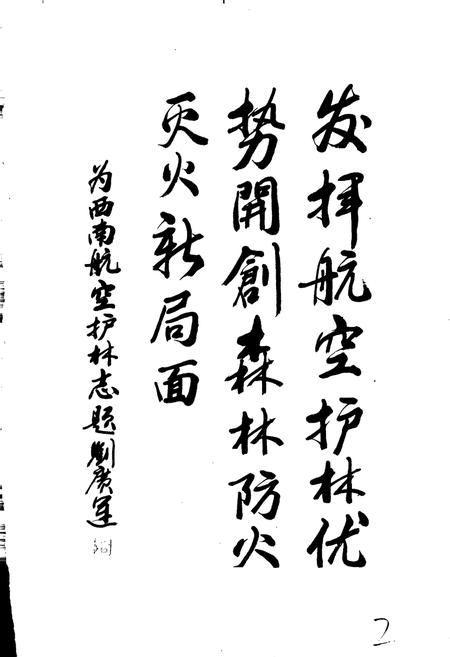 发挥航空护林优
势開創森林防火
灭火新局面
为西南航空护林志题劉廣運
2